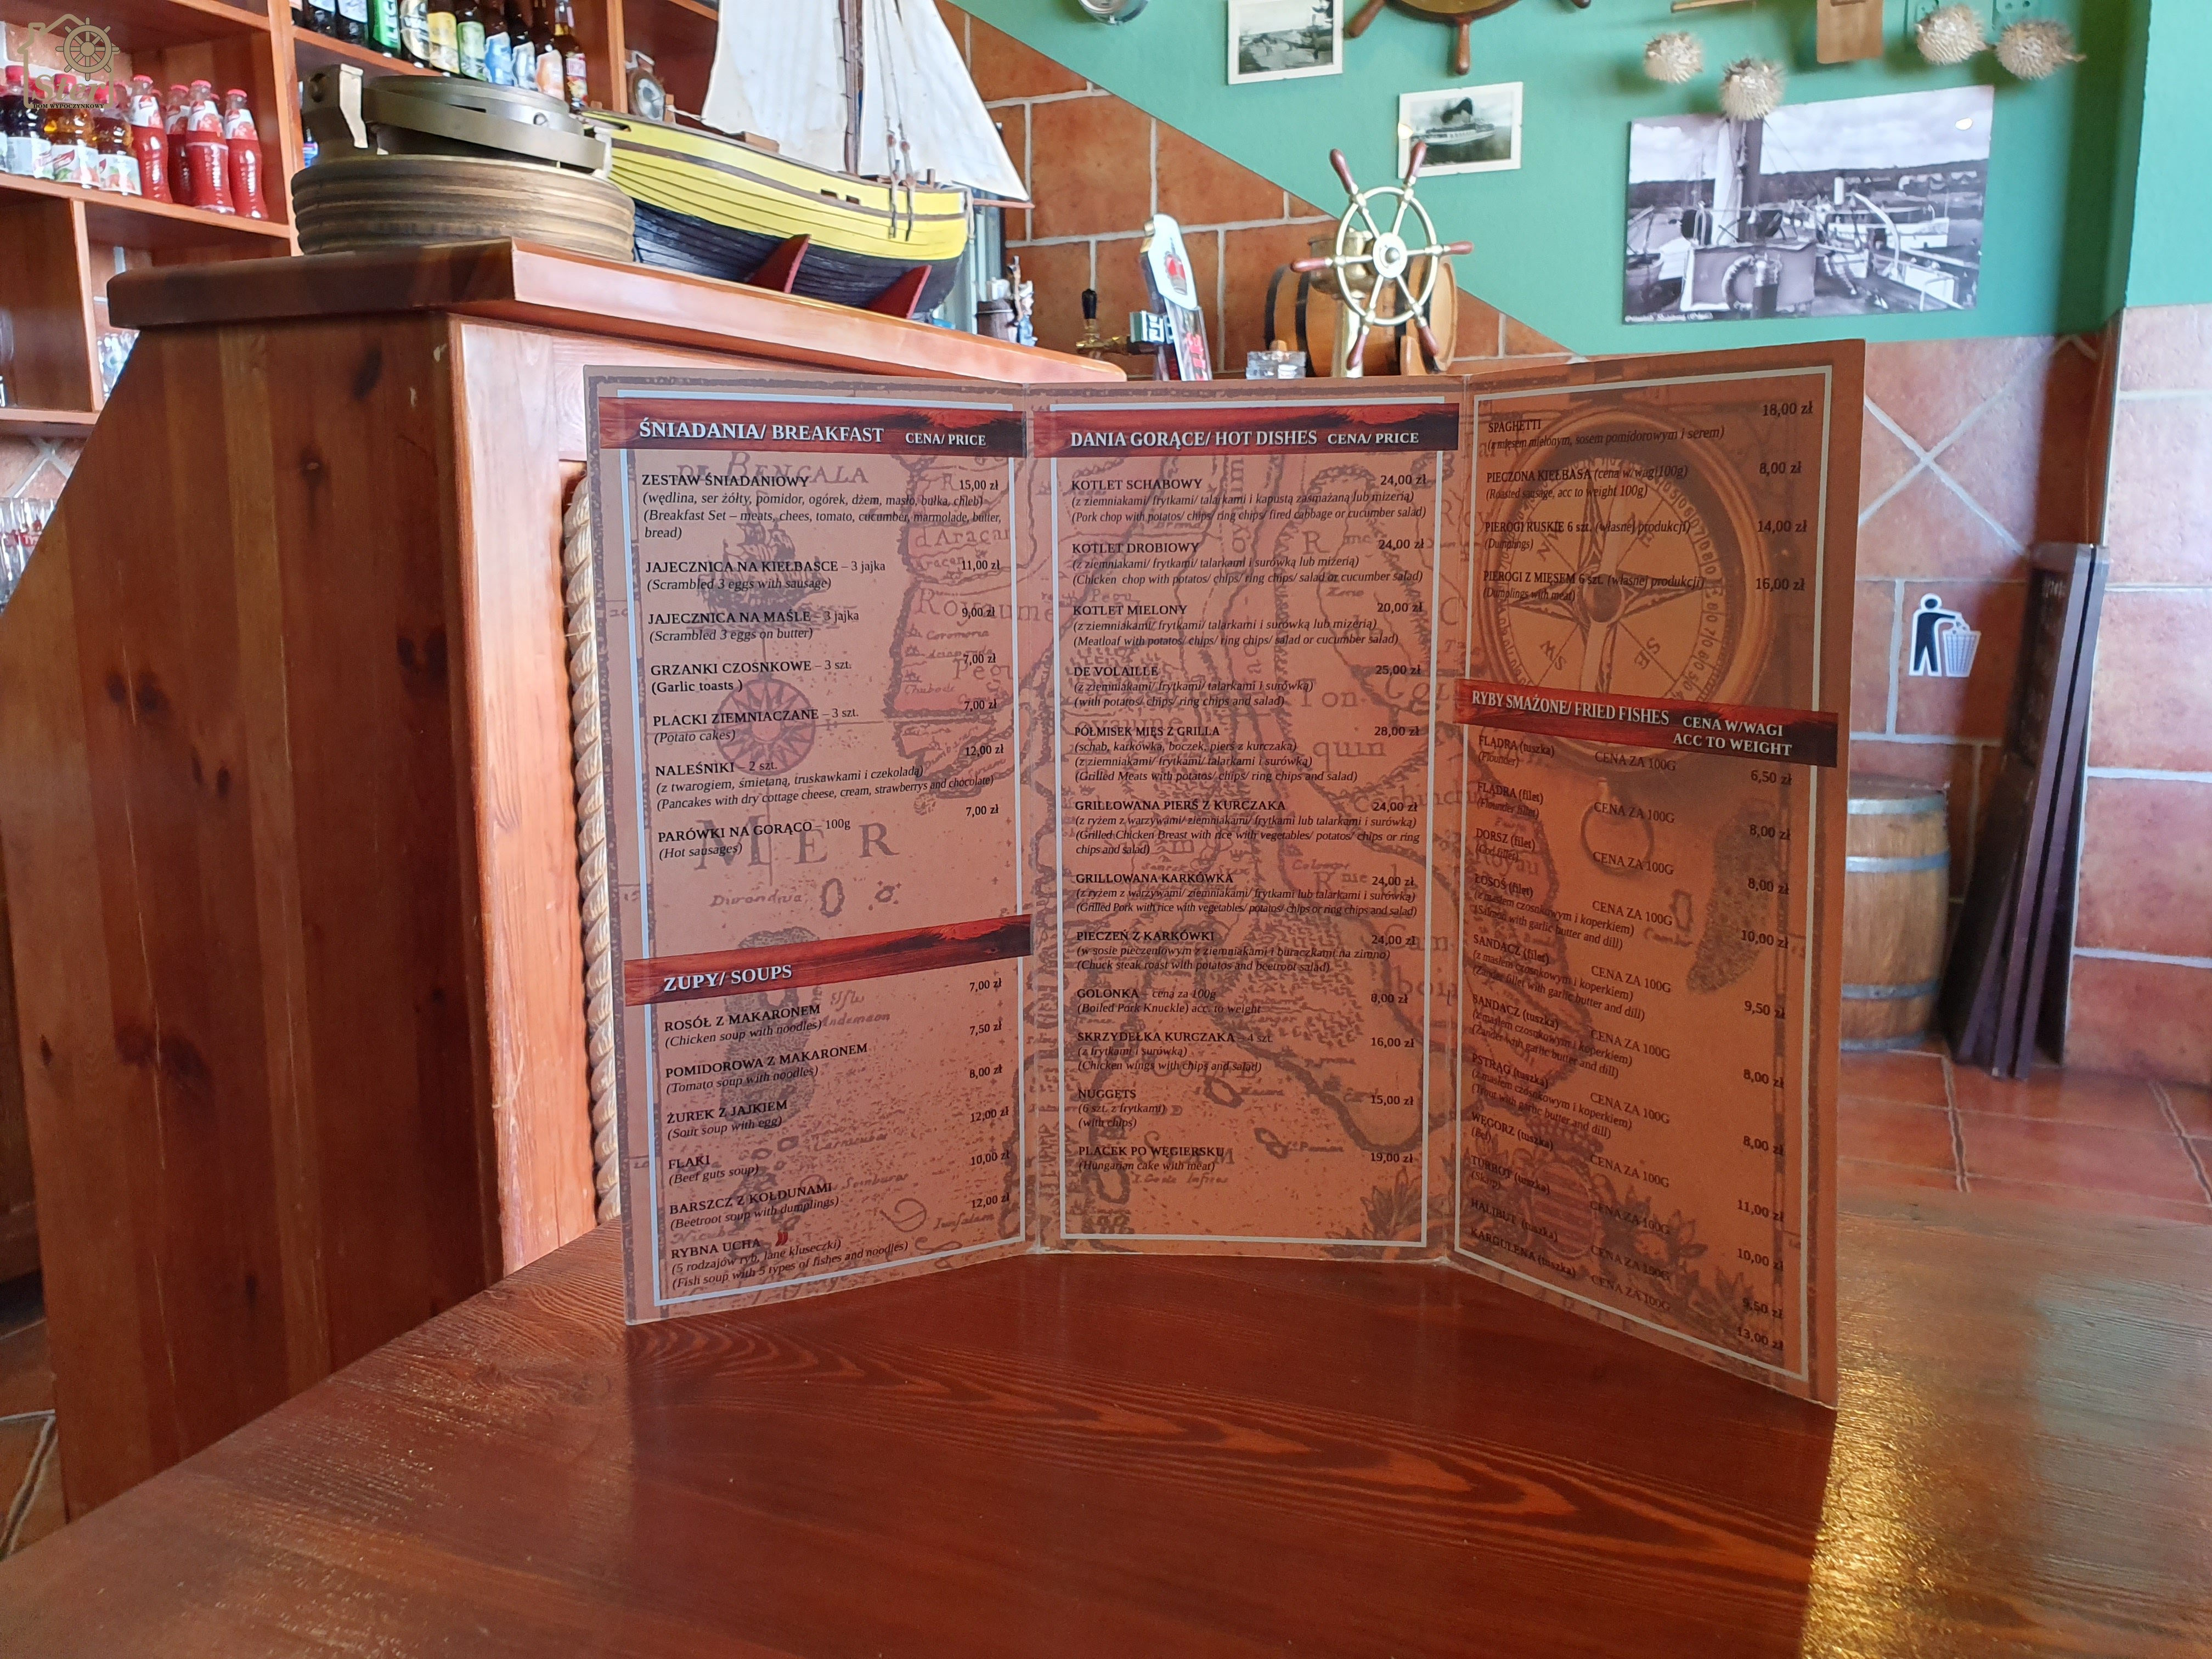 Ster
DOM WYPOCZYNKOWY
ŚNIADANIA/ BREAKFAST CENA/ PRICE
ZESTAW ŚNIADANIOWY 15,00 zł
(wędlina, ser żółty, pomidor, ogórek, dżem, masło, bułka, chleb)
(Breakfast Set – meats, chees, tomato, cucumber, marmolade, butter,
bread)
JAJECZNICA NA KIEŁBAŚCE – 3 jajka 11,00 zł
(Scrambled 3 eggs with sausage)
JAJECZNICA NA MAŚLE – 3 jajka 9,00 zł
(Scrambled 3 eggs on butter)
GRZANKI CZOSNKOWE – 3 szt. 7,00 zł
(Garlic toasts )
PLACKI ZIEMNIACZANE – 3 szt. 7,00 zł
(Potato cakes)
NALEŚNIKI – 2 szt. 12,00 zł
(z twarogiem, śmietaną, truskawkami i czekoladą)
(Pancakes with dry cottage cheese, cream, strawberrys and chocolate)
PARÓWKI NA GORĄCO – 100g 7,00 zł
(Hot sausages)
ZUPY/ SOUPS
ROSÓŁ Z MAKARONEM 7,00 zł
(Chicken soup with noodles)
POMIDOROWA Z MAKARONEM 7,50 zł
(Tomato soup with noodles)
ŻUREK Z JAJKIEM 8,00 zł
(Sour soup with egg)
FLAKI 12,00 zł
(Beef guts soup)
BARSZCZ Z KOŁDUNAMI 10,00 zł
(Beetroot soup with dumplings)
RYBNA UCHA 12,00 zł
(5 rodzajów ryb, lane kluseczki)
(Fish soup with 5 types of fishes and noodles)
DANIA GORĄCE/ HOT DISHES CENA/ PRICE
KOTLET SCHABOWY 24,00 zł
(z ziemniakami/ frytkami/ talarkami i kapustą zasmażaną lub mizerią)
(Pork chop with potatos/ chips/ ring chips/ fired cabbage or cucumber salad)
KOTLET DROBIOWY 24,00 zł
(z ziemniakami/ frytkami/ talarkami i surówką lub mizerią)
(Chicken chop with potatos/ chips/ ring chips/ salad or cucumber salad)
KOTLET MIELONY 20,00 zł
(z ziemniakami/ frytkami/ talarkami i surówką lub mizerią)
(Meatloaf with potatos/ chips/ ring chips/ salad or cucumber salad)
DE VOLAILLE 25,00 zł
(z ziemniakami/ frytkami/ talarkami i surówką)
(with potatos/ chips/ ring chips and salad)
PÓŁMISEK MIĘS Z GRILLA 28,00 zł
(schab, karkówka, boczek, pierś z kurczaka)
(z ziemniakami/ frytkami/ talarkami i surówką)
(Grilled Meats with potatos/ chips/ ring chips and salad)
GRILLOWANA PIERŚ Z KURCZAKA 24,00 zł
(z ryżem z warzywami/ ziemniakami/ frytkami lub talarkami i surówką)
(Grilled Chicken Breast with rice with vegetables/ potatos/ chips or ring
chips and salad)
GRILLOWANA KARKÓWKA 24,00 zł
(z ryżem z warzywami/ ziemniakami/ frytkami lub talarkami i surówką)
(Grilled Pork with rice with vegetables/ potatos/ chips or ring chips and salad)
PIECZEŃ Z KARKÓWKI 24,00 zł
(w sosie pieczeniowym z ziemniakami i buraczkami na zimno)
(Chuck steak roast with potatos and beetroot salad)
GOLONKA – cena za 100g 8,00 zł
(Boiled Pork Knuckle) acc. to weight
SKRZYDEŁKA KURCZAKA – 4 szt. 16,00 zł
(z frytkami i surówką)
(Chicken wings with chips and salad)
NUGGETS 15,00 zł
(6 szt. z frytkami)
(with chips)
PLACEK PO WĘGIERSKU 19,00 zł
(Hungarian cake with meat)
SPAGHETTI 18,00 zł
(z mięsem mielonym, sosem pomidorowym i serem)
PIECZONA KIEŁBASA (cena w/wagi 100g) 8,00 zł
(Roasted sausage, acc to weight 100g)
PIEROGI RUSKIE 6 szt. (własnej produkcji) 14,00 zł
(Dumplings)
PIEROGI Z MIĘSEM 6 szt. (własnej produkcji) 16,00 zł
(Dumplings with meat)
RYBY SMAŻONE/ FRIED FISHES CENA W/WAGI
ACC TO WEIGHT
FLĄDRA (tuszka) CENA ZA 100G 6,50 zł
(Flounder)
FLĄDRA (filet) CENA ZA 100G 8,00 zł
(Flounder fillet)
DORSZ (filet) CENA ZA 100G 8,00 zł
(Cod fillet)
ŁOSOŚ (filet) CENA ZA 100G 10,00 zł
(z masłem czosnkowym i koperkiem)
(Salmon with garlic butter and dill)
SANDACZ (filet) CENA ZA 100G 9,50 zł
(z masłem czosnkowym i koperkiem)
(Zander fillet with garlic butter and dill)
SANDACZ (tuszka) CENA ZA 100G 8,00 zł
(z masłem czosnkowym i koperkiem)
(Zander with garlic butter and dill)
PSTRĄG (tuszka) CENA ZA 100G 8,00 zł
(z masłem czosnkowym i koperkiem)
(Trout with garlic butter and dill)
WĘGORZ (tuszka) CENA ZA 100G 11,00 zł
(Eel)
TURBOT (tuszka) CENA ZA 100G 10,00 zł
HALIBUT (tuszka) CENA ZA 100G 9,50 zł
KARGULENA (tuszka) CENA ZA 100G 13,00 zł